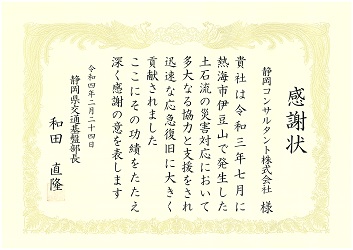 感謝状
静岡コンサルタント株式会社 様
貴社は令和三年七月に
熱海市伊豆山で発生した
土石流の災害対応において
多大なる協力と支援をされ
迅速な応急復旧に大きく
貢献されました
ここにその功績をたたえ
深く感謝の意を表します
令和四年二月二十四日
静岡県交通基盤部長
和田 直隆